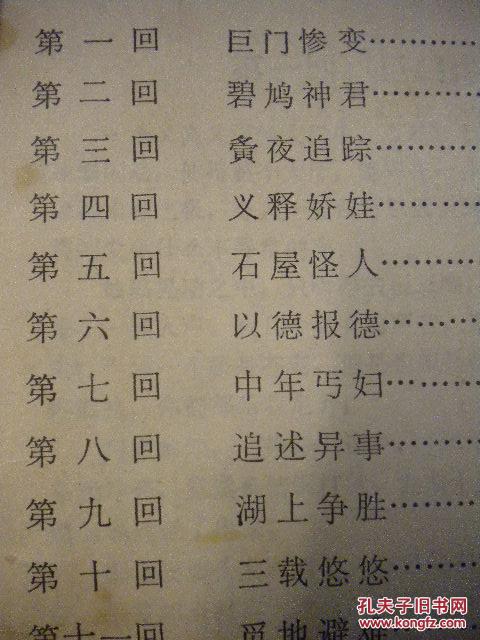 第一回 巨门惨变…………
第二回 碧鸠神君…………
第三回 夤夜追踪…………
第四回 义释娇娃…………
第五回 石屋怪人…………
第六回 以德报德…………
第七回 中年丐妇…………
第八回 追述异事…………
第九回 湖上争胜…………
第十回 三载悠悠…………
第十一回 觅地避难
孔夫子旧书网